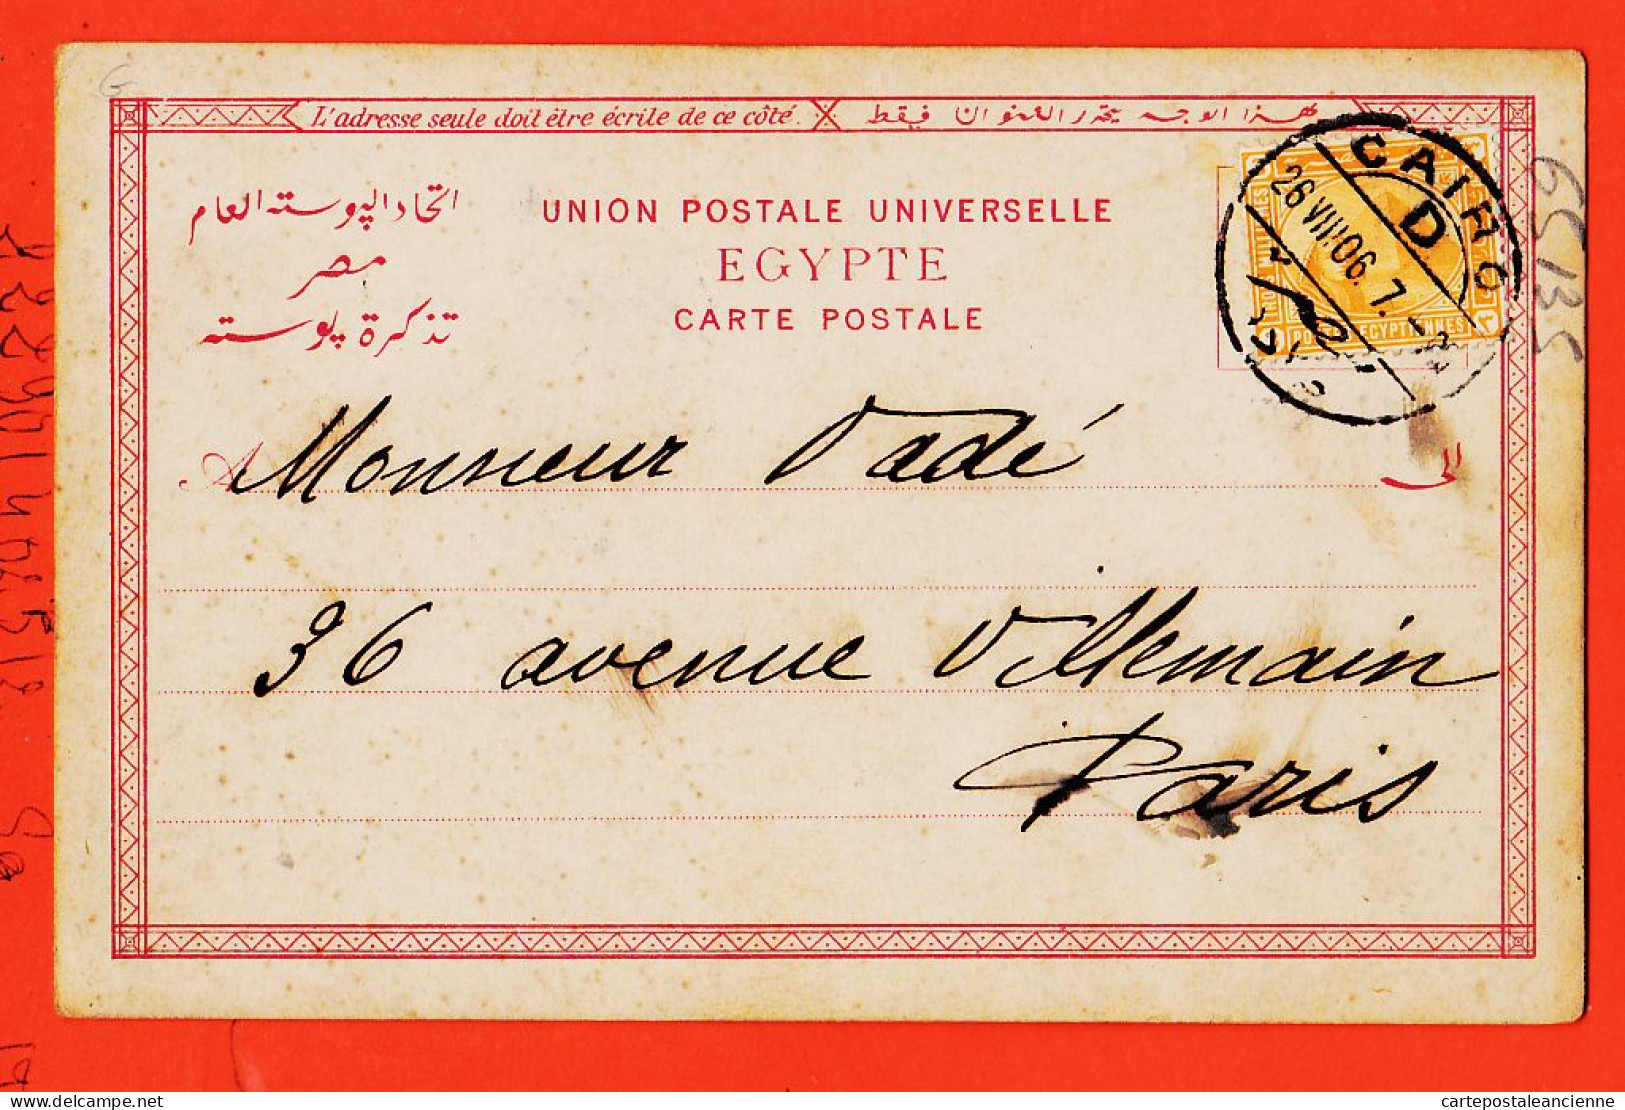 L'adresse seule doit être écrite de ce côté.
هذا الوجه يحرر العنوان فقط
اتحاد البوسته العام
مصر
تذكرة بوسته
UNION POSTALE UNIVERSELLE
EGYPTE
CARTE POSTALE
CAIRO
D
26 VIII 06. 7
POSTES EGYPTIENNES
A Monsieur Vadé
الى
36 avenue Villemain
Paris
www.delcampe.net
cartepostaleancienne